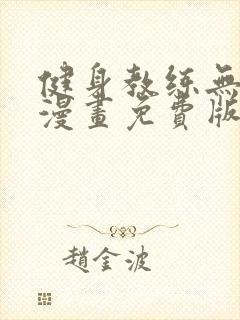 健身教练無
漫畫免費版
趙金波